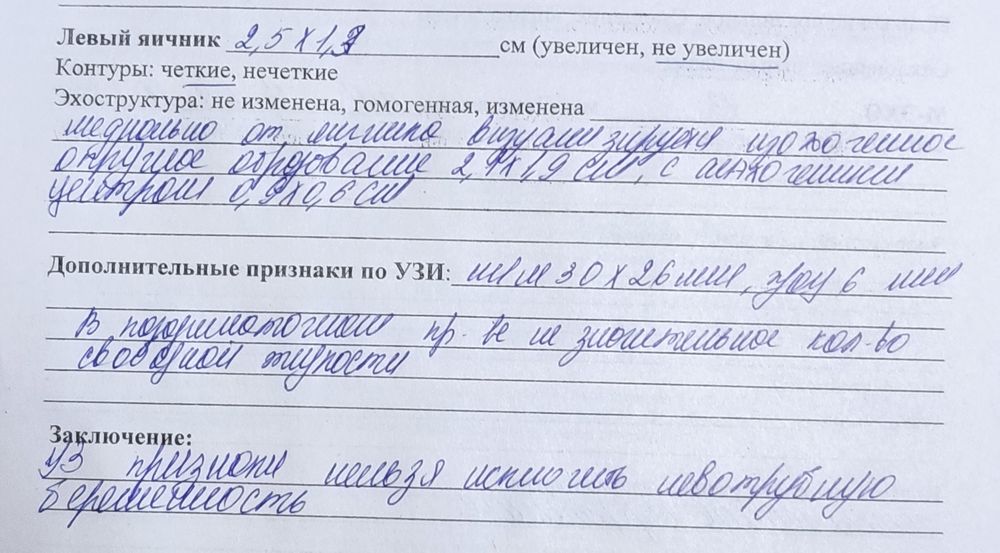 Левый яичник 2,5 х 1,3 см (увеличен, не увеличен)
Контуры: четкие, нечеткие
Эхоструктура: не изменена, гомогенная, изменена
медиально от яичника визуализируется изоэхогенное
округлое образование 2,4х1,9 см, с анэхогенным
центром 0,9х0,6 см
Дополнительные признаки по УЗИ: ш/м 30 х 26 мм, 6 мм
В позадиматочном пр-ве не значительное кол-во
свободной жидкости
Заключение:
УЗ признаки нельзя исключить левотрубную
беременность